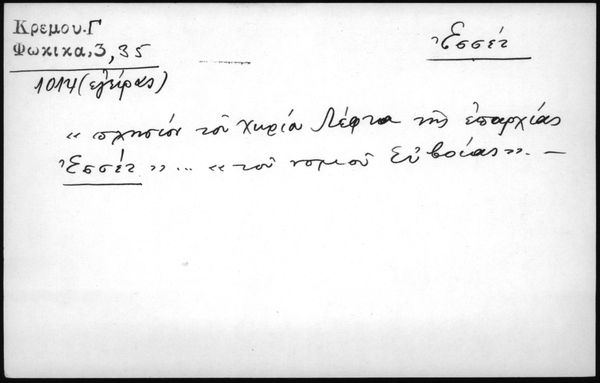 Κρεμου.Γ
Φωκικα,3,35
Ἐσσέτ
1014 (ἐγείρας)
« πλησίον τοῦ χωρία Λέφτα τῆς ἐπαρχίας
Ἐσσέτ » ... « τοῦ νομοῦ Εὐβοίας ». —